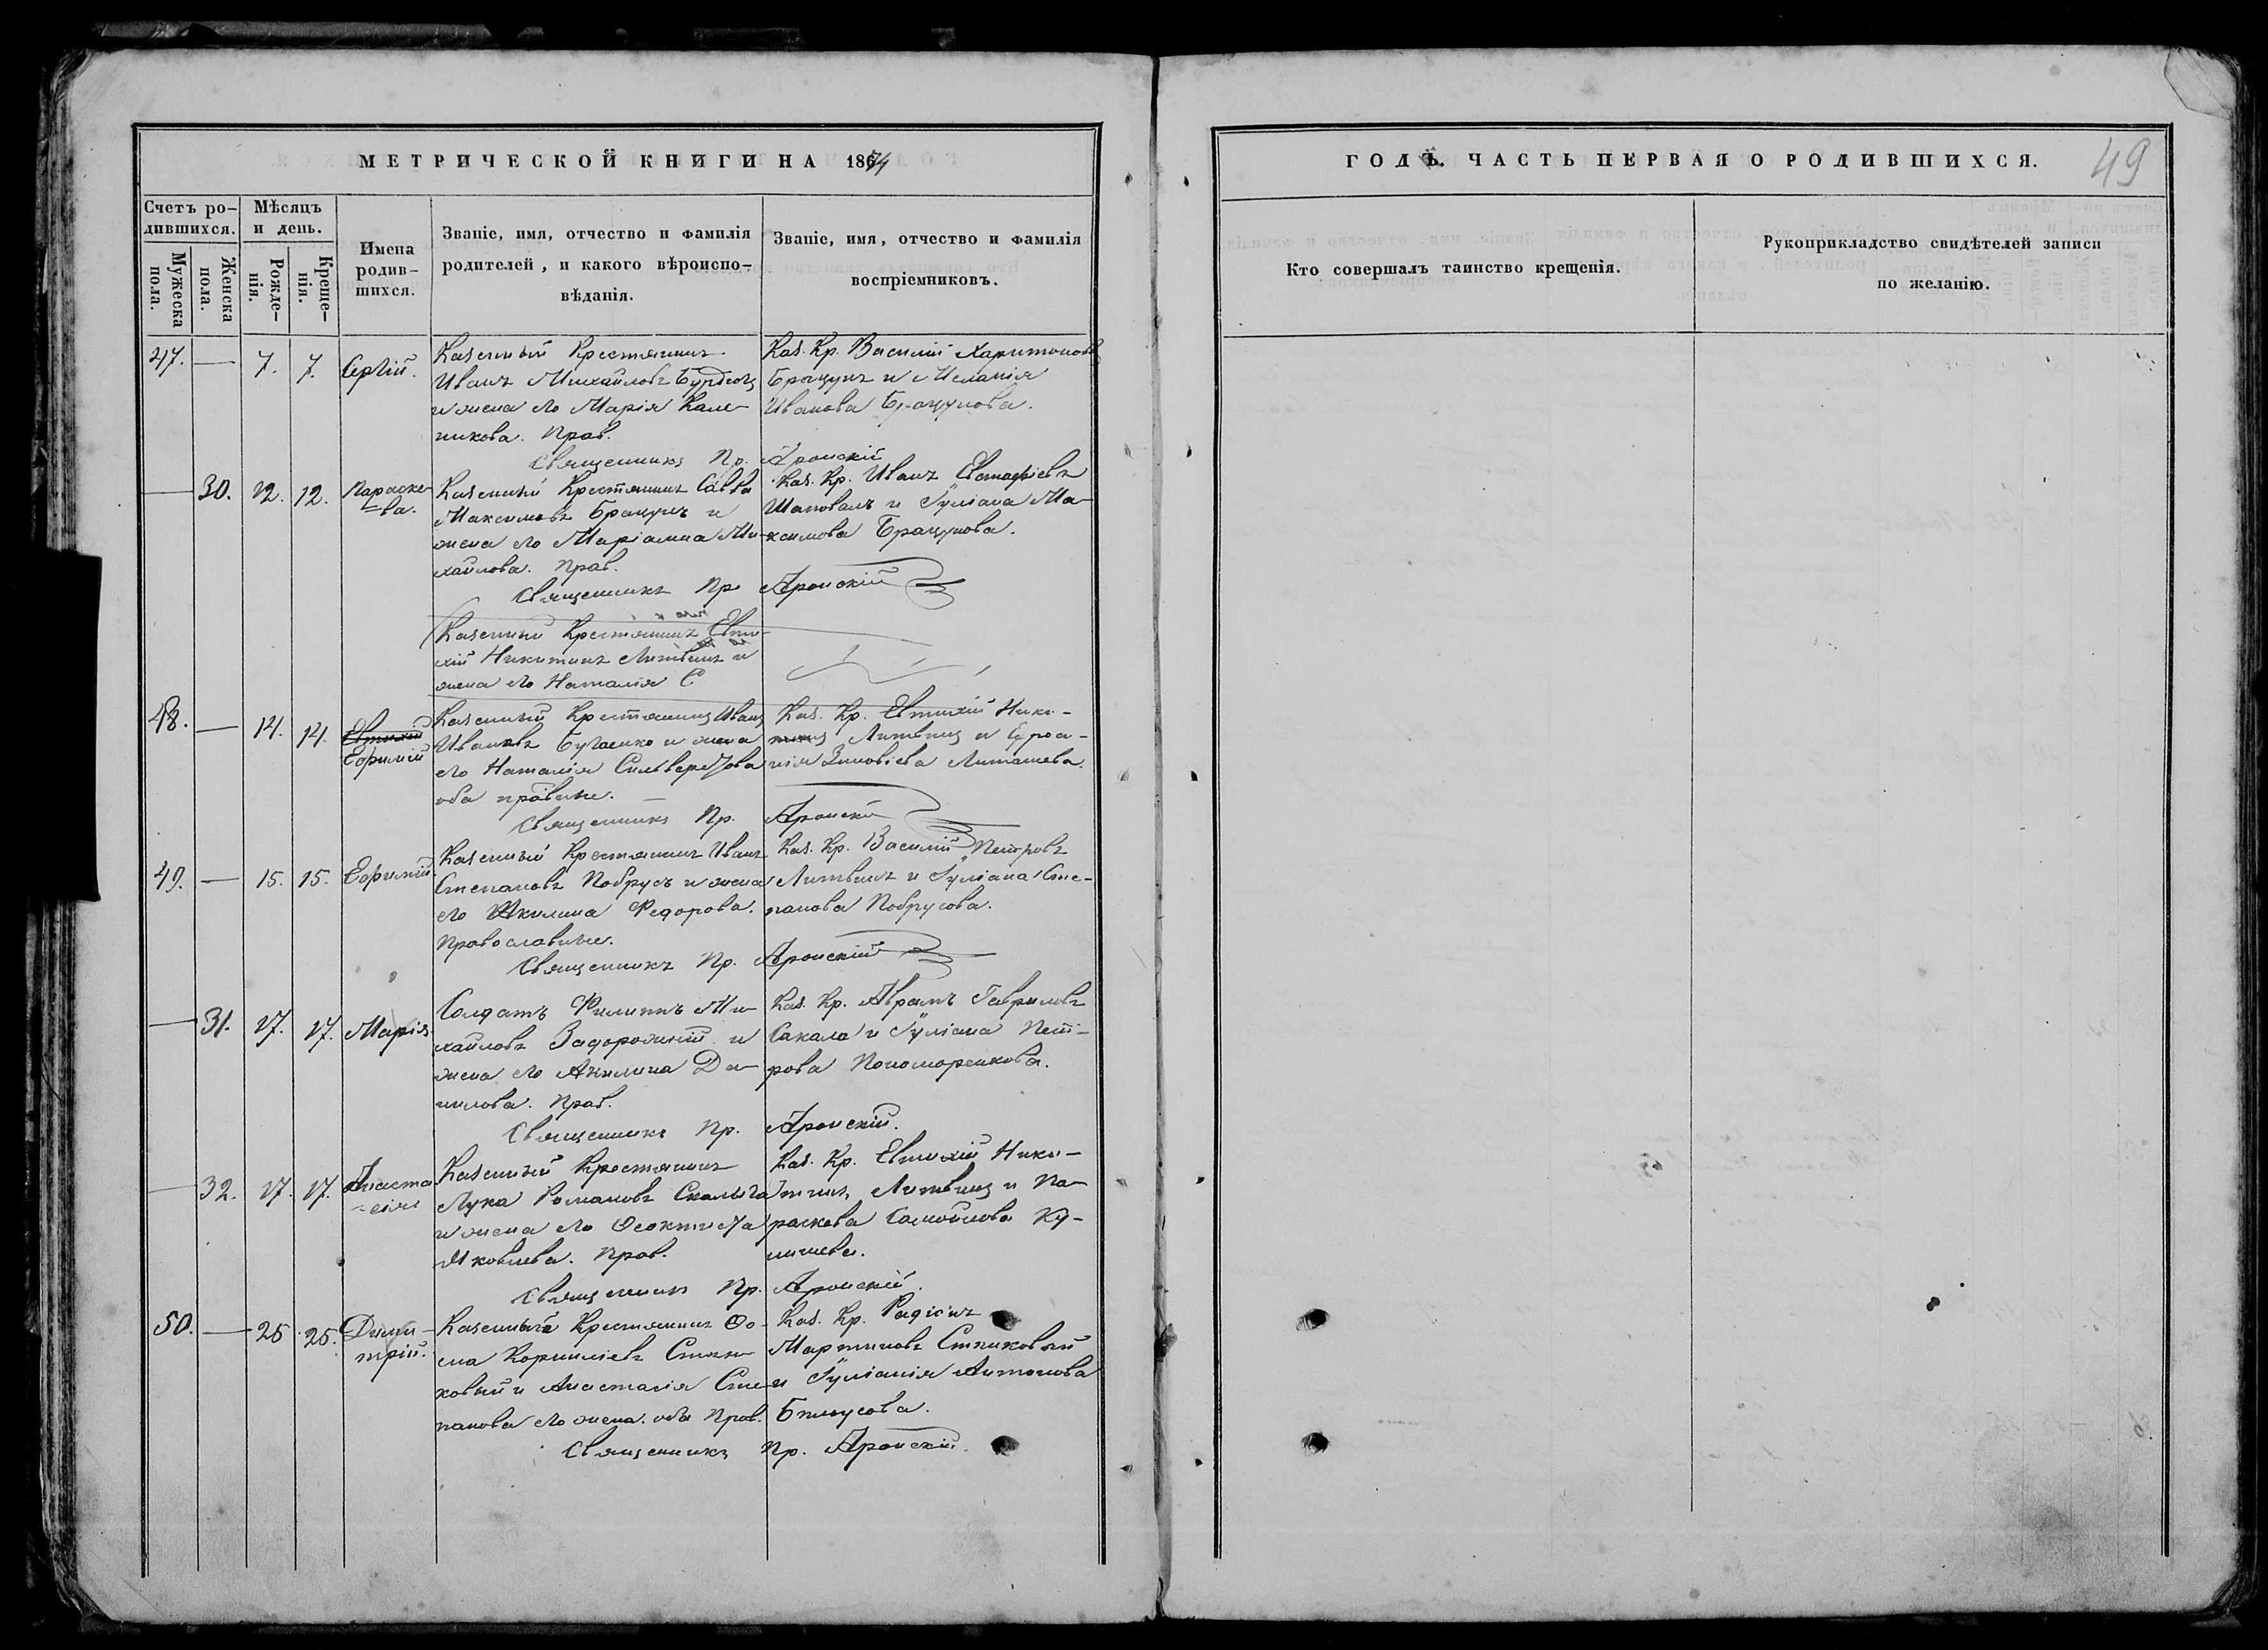 МЕТРИЧЕСКОЙ КНИГИ НА 1874
Счетъ ро-
дившихся.
Мужеска
пола.
Женска
пола.
Мѣсяцъ
и день.
Рожде-
нія.
Креще-
нія.
Имена
родив-
шихся.
Званіе, имя, отчество и фамилія
родителей, и какого вѣроиспо-
вѣданія.
Званіе, имя, отчество и фамилія
воспріемниковъ.
47. — 7. 7. Сергій.
Казенный Крестянинъ
Иванъ Михайловъ
и жена его Марія Кале-
никова. Прав.
Каз. Кр. Василій Харитоновъ
Брацунъ и Меланія
Иванова Брацунова.
Священникъ Пр. Аронскій
— 30. 12. 12. Параске-
ва.
Казенный Крестянинъ Савва
Максимовъ Брацунъ и
жена его Маріамна Ми-
хайлова. Прав.
Каз. Кр. Иванъ Евстафіевъ
Шаповалъ и Іуліана Ма-
ксимова Брацунова.
Священникъ Пр. Аронскій
Казенный Крестянинъ Евти-
хій Никитинъ Литвинъ и
жена его Наталія С
48. — 14. 14. Евтихій
Ефимій
Казенный Крестянинъ Иванъ
Ивановъ Бутенко и жена
его Наталія Сильвестрова
оба православные.
Каз. Кр. Евтихій Ники-
тинъ Литвинъ и
Зиновіева Литашева.
Священникъ Пр. Аронскій
49. — 15. 15. Ефимій
Казенный Крестянинъ Иванъ
Степановъ Побрусъ и жена
его Акилина Федорова.
Православные.
Каз. Кр. Василій Петровъ
Литвинъ и Іуліана Сте-
панова Побрусова.
Священникъ Пр. Аронскій
— 31. 17. 17. Марія
Солдатъ Филиппъ Ми-
хайловъ Задорожній и
жена его Акилина Да-
нилова. Прав.
Каз. Кр. Аврамъ Гавриловъ
Сакало и Іуліана Пет-
рова Пономоренкова.
Священникъ Пр. Аронскій.
— 32. 17. 17. Анаста
сія
Казенный Крестянинъ
Лука Романовъ Скалыга
и жена его Феоктиста
Яковлева. Прав.
Каз. Кр. Евтихій Ники-
тинъ Литвинъ и Па-
раскева Самойлова
Священникъ Пр. Аронскій.
50. — 25 25. Дими-
трій.
Казенный Крестянинъ Фо-
ма Корниліевъ
ковый и Анастасія Сте-
панова его жена. оба Прав.
Каз. Кр. Радіонъ
Мартиновъ Стпиковый
и Іуліанія Антонова
Билоусова.
Священникъ Пр. Аронскій.
ГОДЪ. ЧАСТЬ ПЕРВАЯ О РОДИВШИХСЯ.
49
Кто совершалъ таинство крещенія.
Рукоприкладство свидѣтелей записи
по желанію.